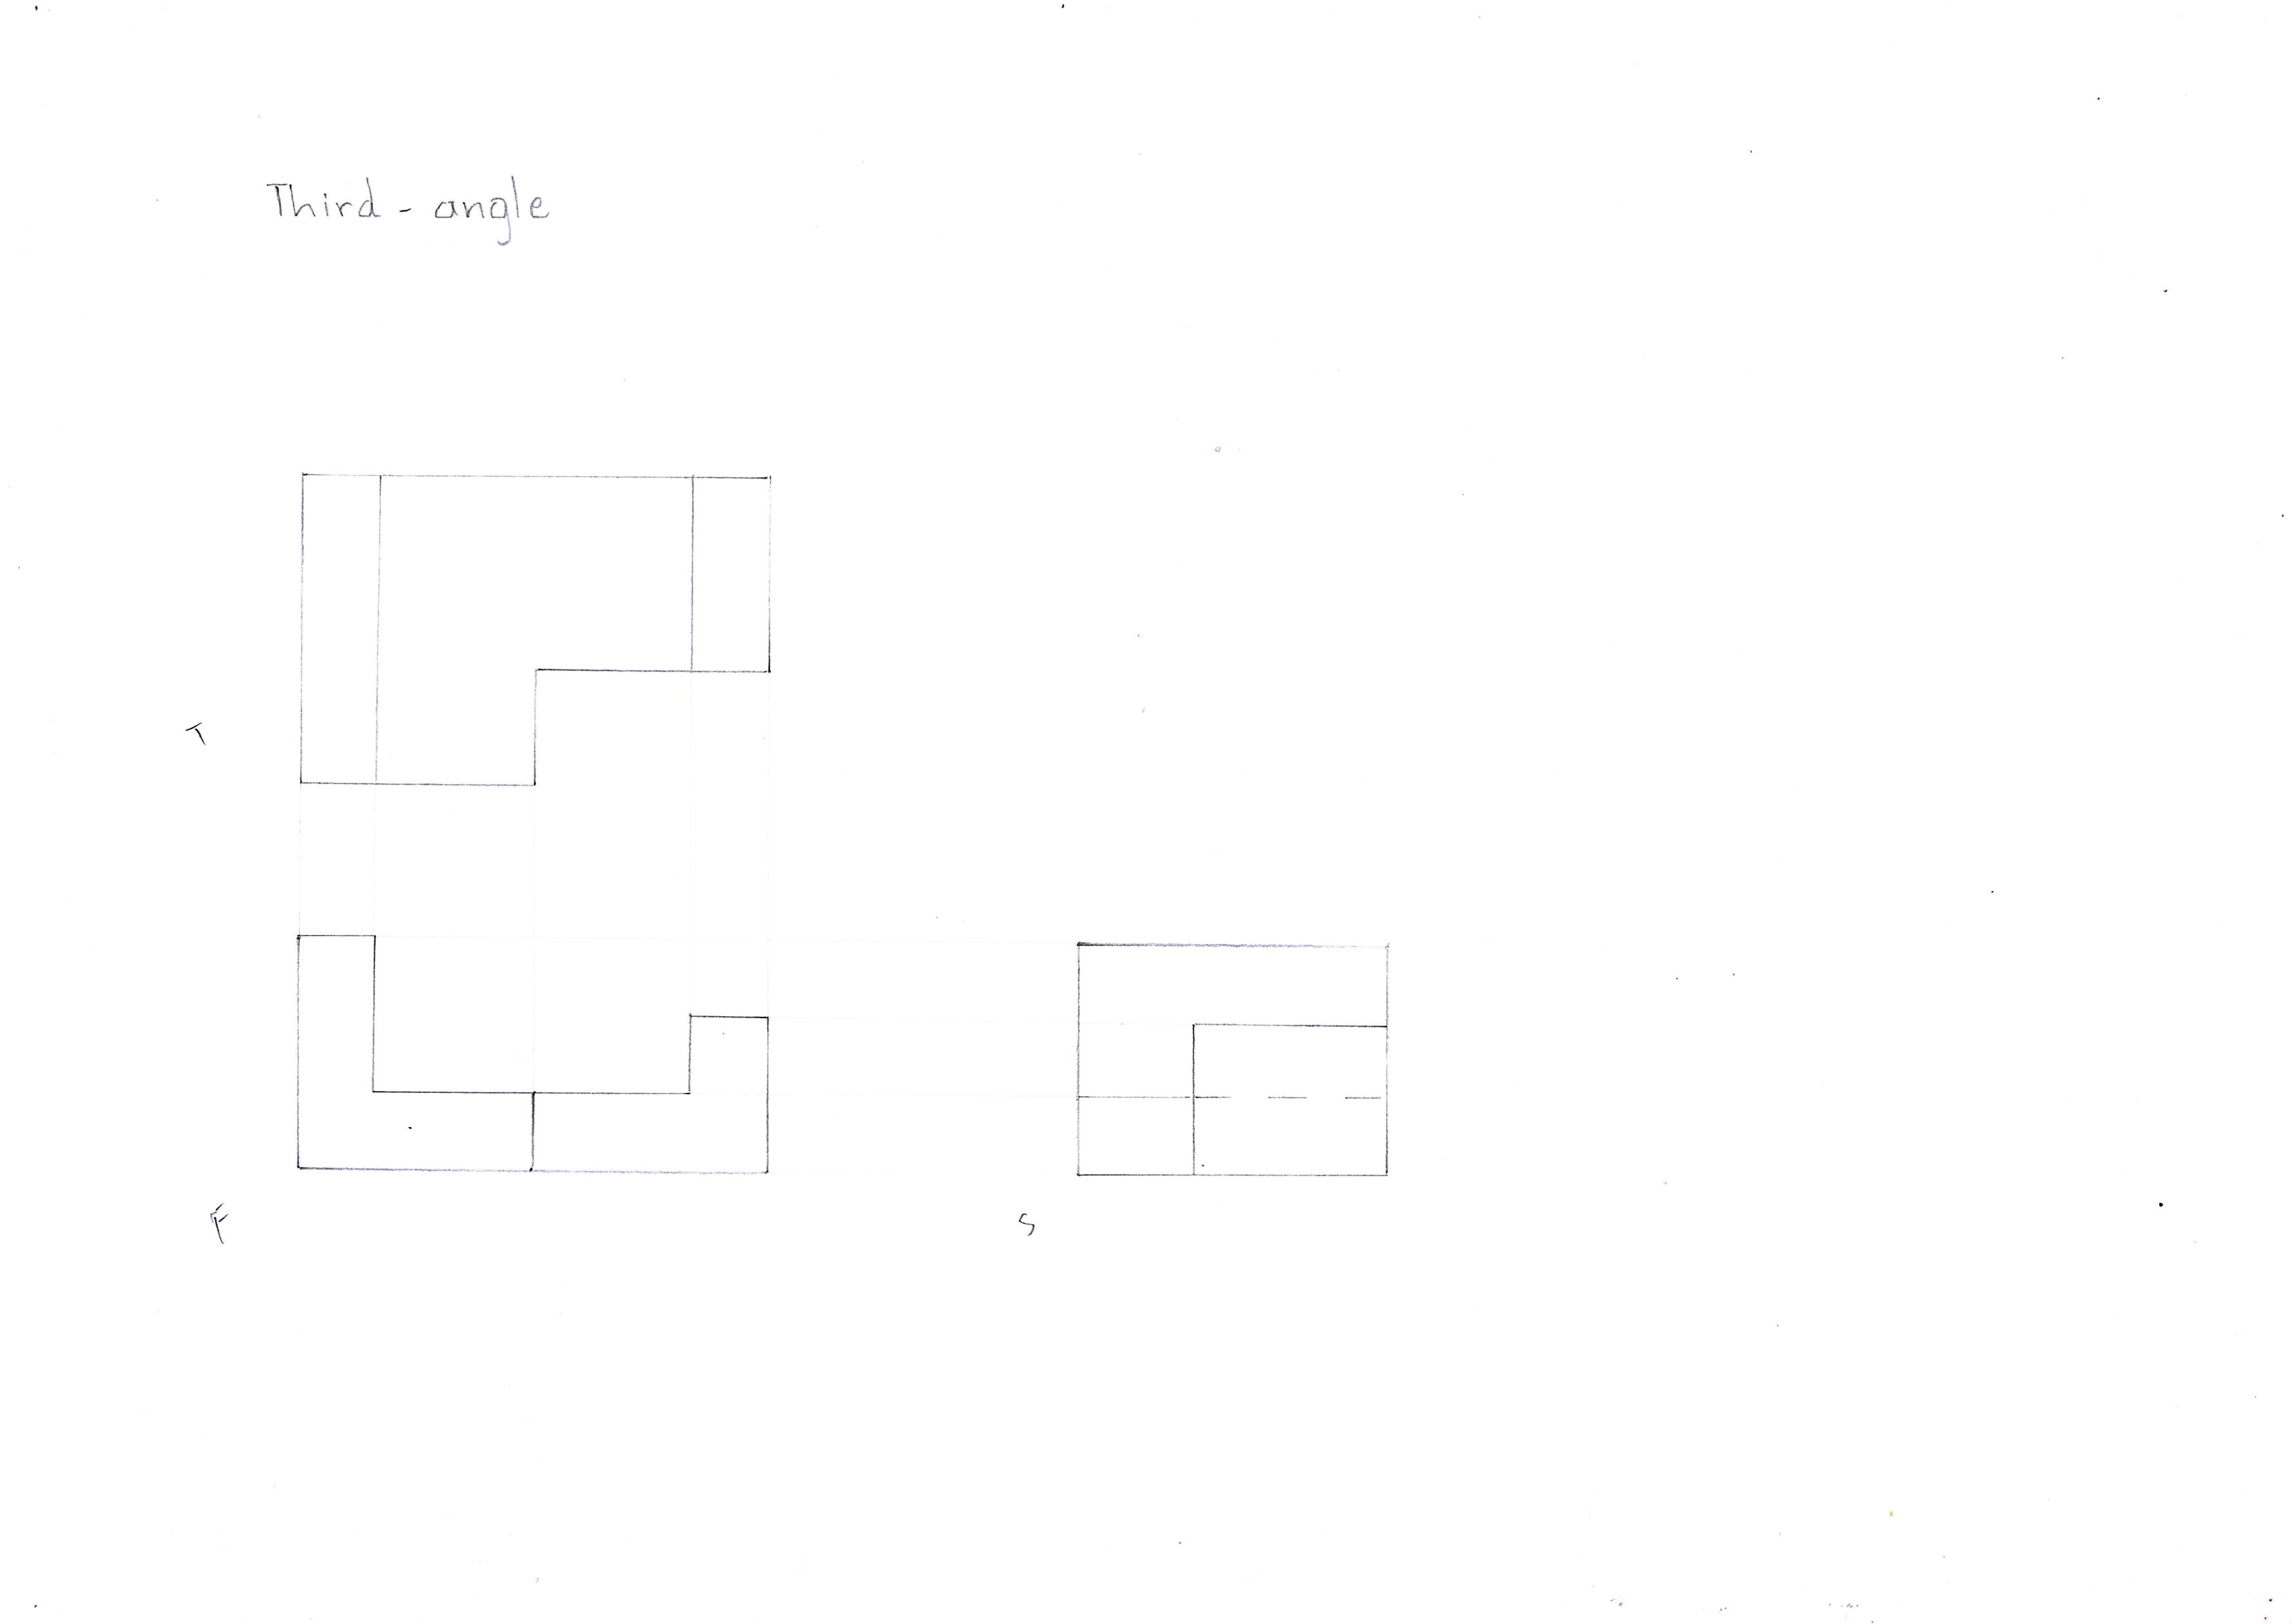 Third - angle
T
F
S